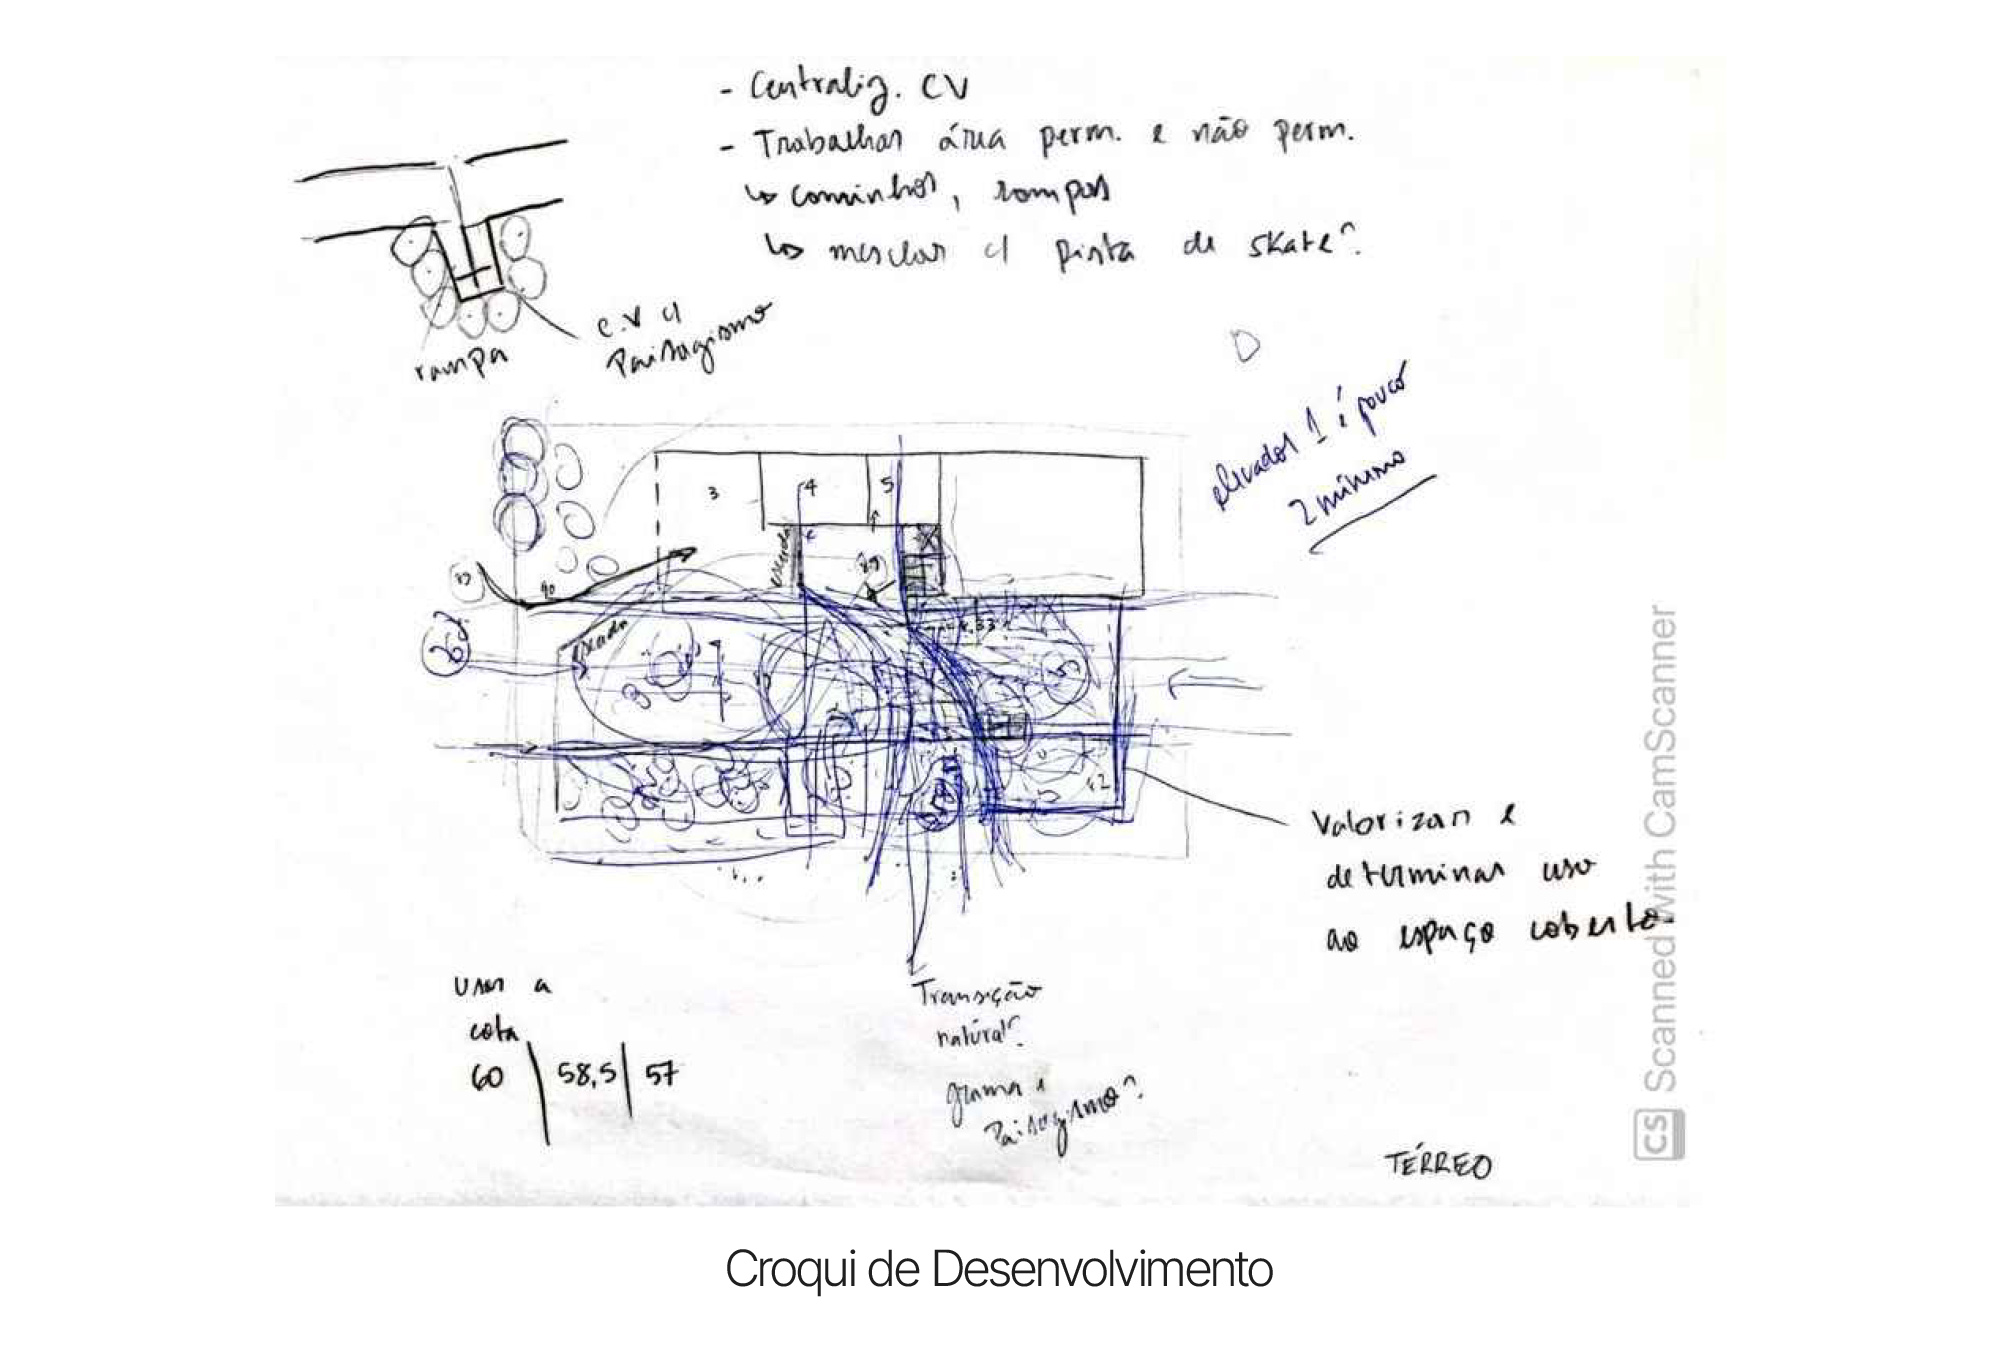 - Centraliz. CV
- Trabalhar área perm. e não perm.
↳ caminhos, rampas
↳ mesclar c/ pista de skate?
c.v c/
Paisagismo
rampa
elevador 1 é pouco
2 mínimo
3
4
5
escada
escada
Valorizar e
determinar uso
ao espaço coberto
Usar a
cota
60 | 58,5 | 57
Transição
natural?
grama e
Paisagismo?
TÉRREO
CS Scanned with CamScanner
Croqui de Desenvolvimento